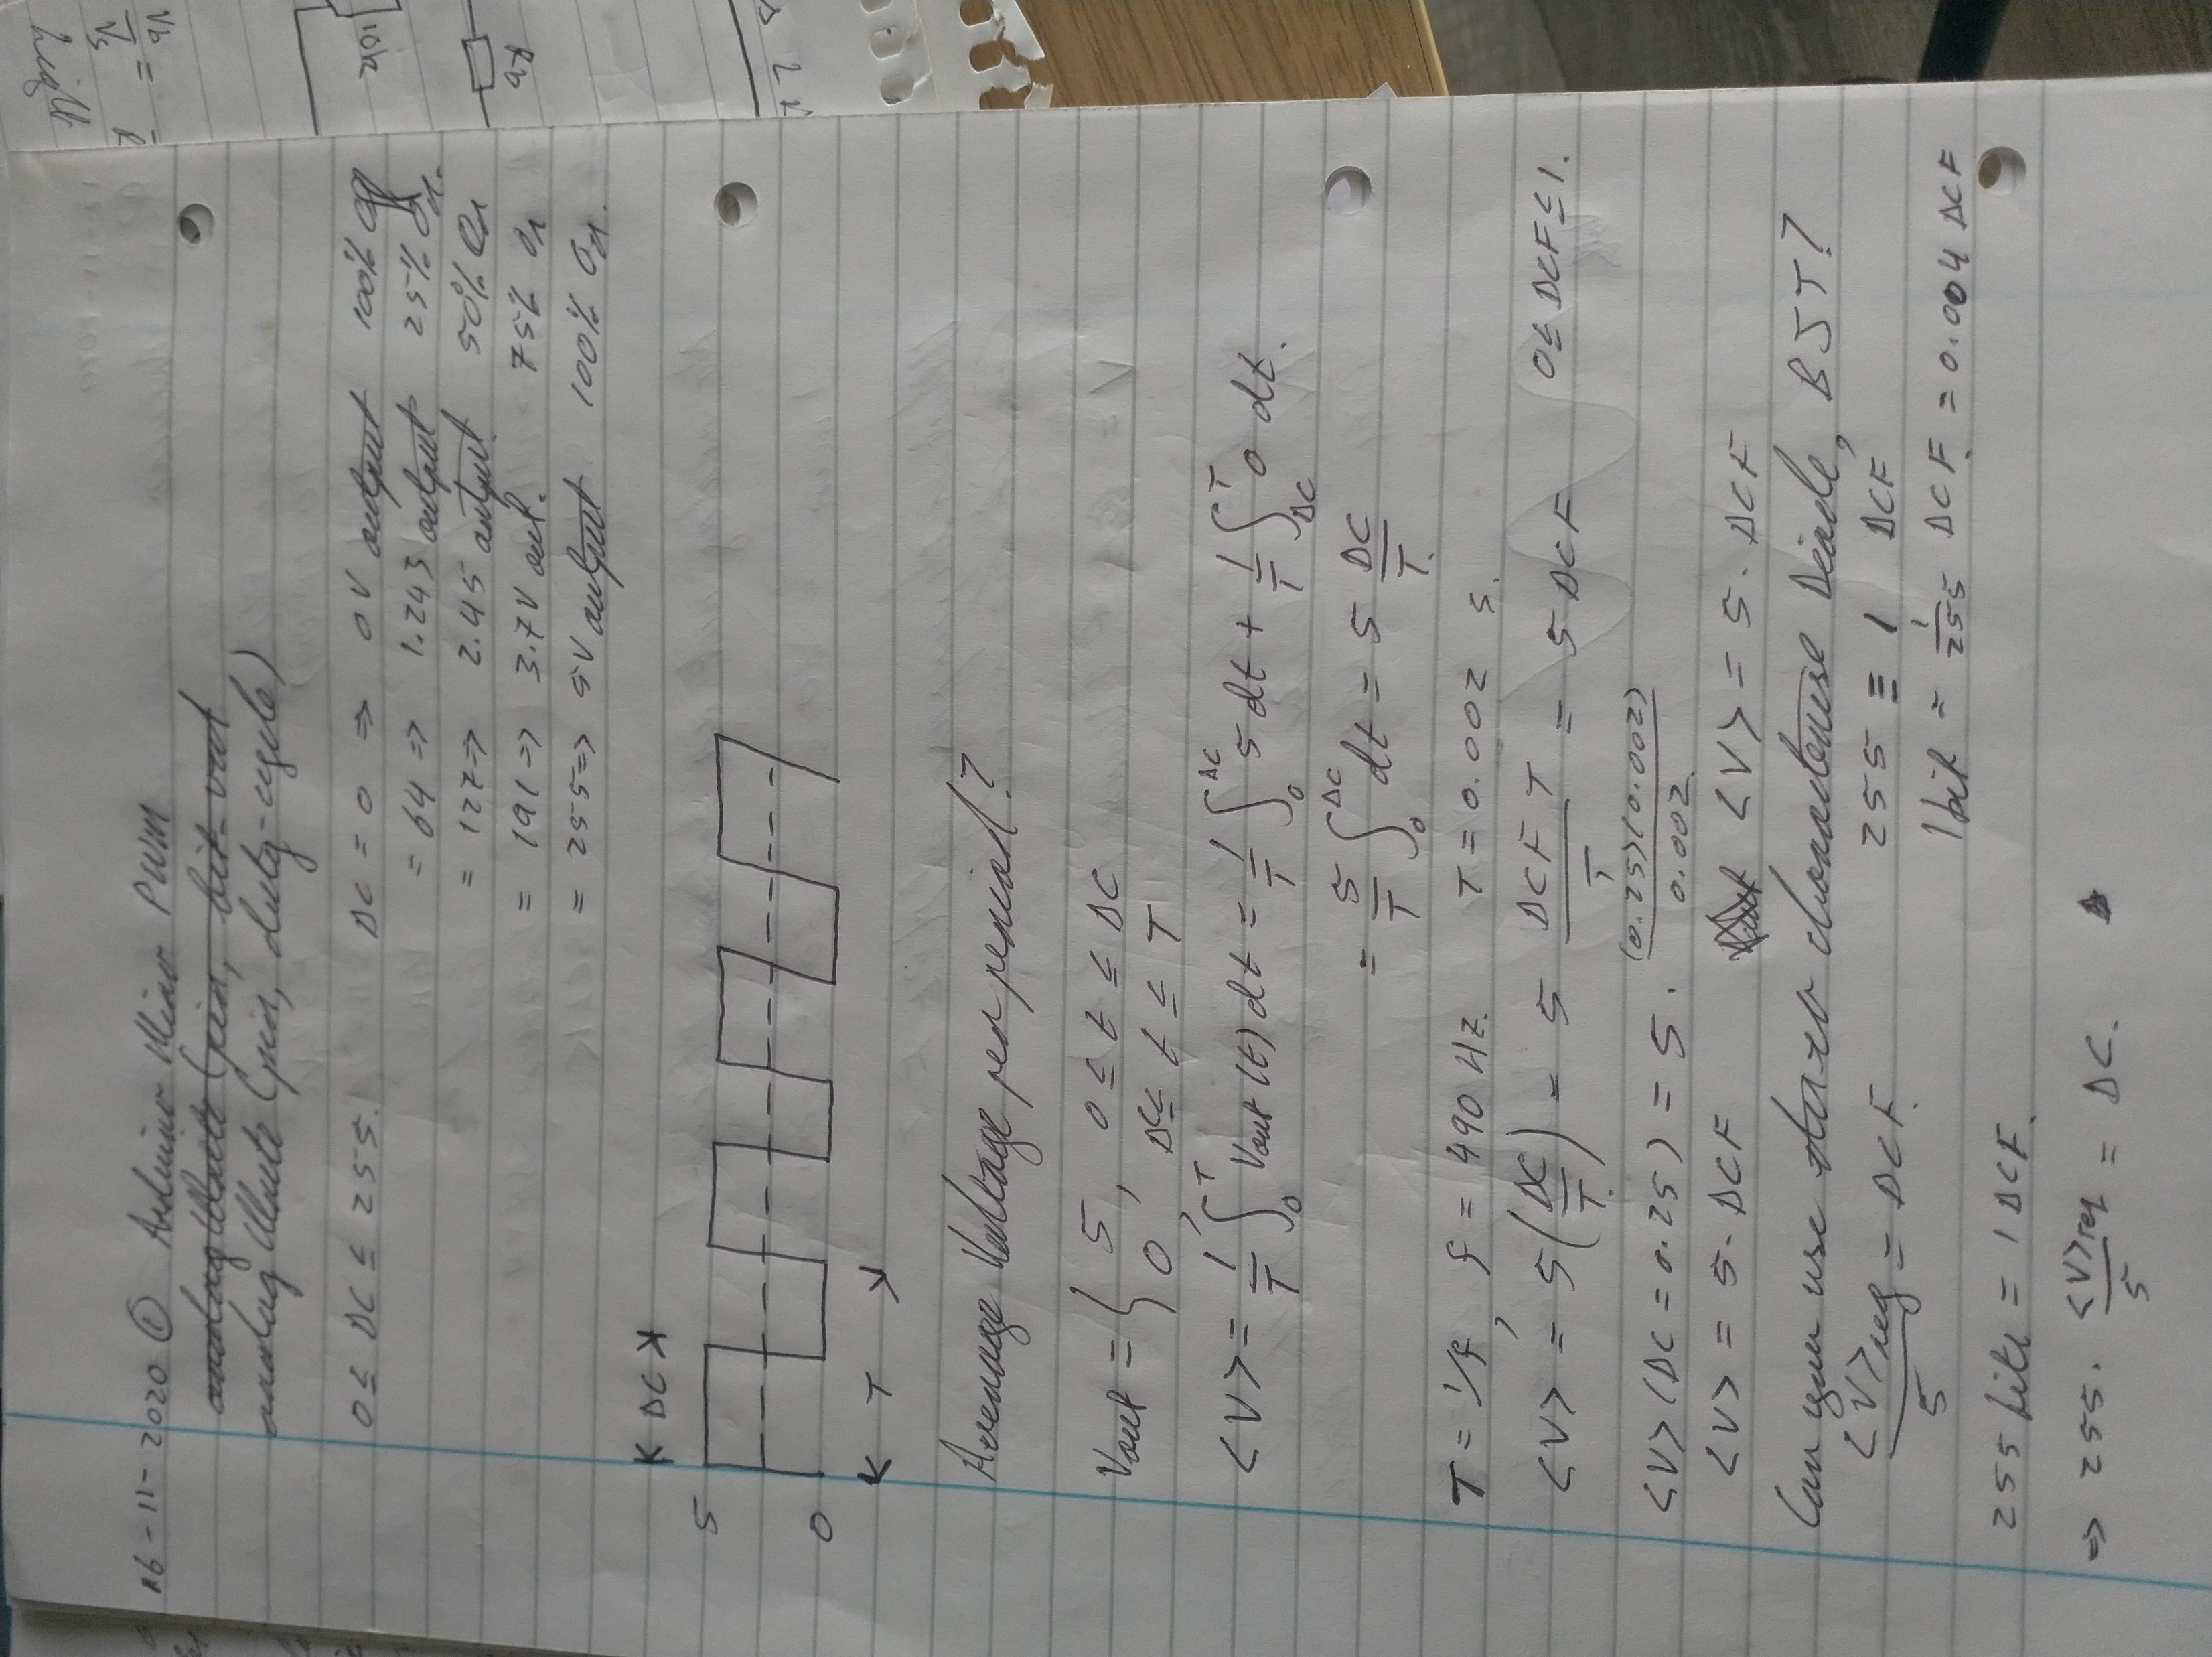 16-11-2020 ① Arduino Micro PWM
analogWrite (pin, bit-vout
analogWrite (pin, duty-cycle)
0 ≤ DC ≤ 255. DC = 0 ⇒ 0V output 100% Off
= 64 ⇒ 1.243 output 25% On.
= 127 ⇒ 2.45 output 50% On
= 191 ⇒ 3.7V out. 75% On
= 255 ⇒ 5V output 100% On.
DC
5
0
T
Average Voltage per period?
Vout = { 5, 0 ≤ t ≤ DC
0, DC ≤ t ≤ T
<V> = 1/T ∫₀ᵀ Vout(t) dt = 1/T ∫₀ᴰᶜ 5 dt + 1/T ∫_DC^T 0 dt.
= 5/T ∫₀ᴰᶜ dt = 5 DC/T.
T = 1/f, f = 490 Hz. T = 0.002 s.
<V> = 5(DC/T) = 5 DCF T/T = 5 DCF 0 ≤ DCF ≤ 1.
<V>(DC = 0.25) = 5. (0.25)(0.002)/0.002
<V> = 5. DCF <V> = 5. DCF
Can you use to characterise Diode, BJT?
<V>req/5 = DCF. 255 ≡ 1 DCF
1 bit = 1/255 DCF. = 0.004 DCF
255 bits = 1 DCF.
⇒ 255. <V>req/5 = DC.